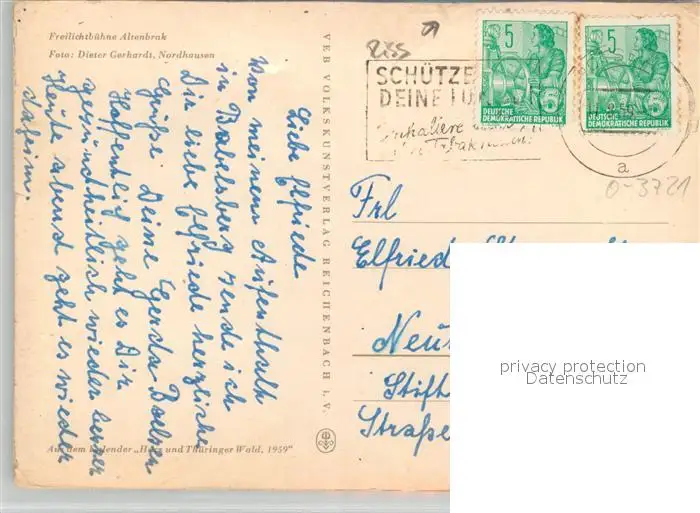 Freilichtbühne Altenbrak
Foto: Dieter Gerhardt, Nordhausen
Liebe Elfriede
Von meinem Aufenthalt
in Babelsberg sende ich
Dir liebe Elfriede herzliche
Grüße. Deine Gerda
Hoffentlich geht es Dir
gesundheitlich wieder besser
Heute abend geht es wieder
daheim.
Aus dem Kalender „Harz und Thüringer Wald, 1959"
VEB VOLKSKUNSTVERLAG REICHENBACH i. V.
SCHÜTZE
DEINE LU
5
DEUTSCHE
DEMOKRATISCHE REPUBLIK
5
DEUTSCHE
DEMOKRATISCHE REPUBLIK
a
0-3721
Frl
Elfriede
Neu
Stift
Straße
privacy protection
Datenschutz